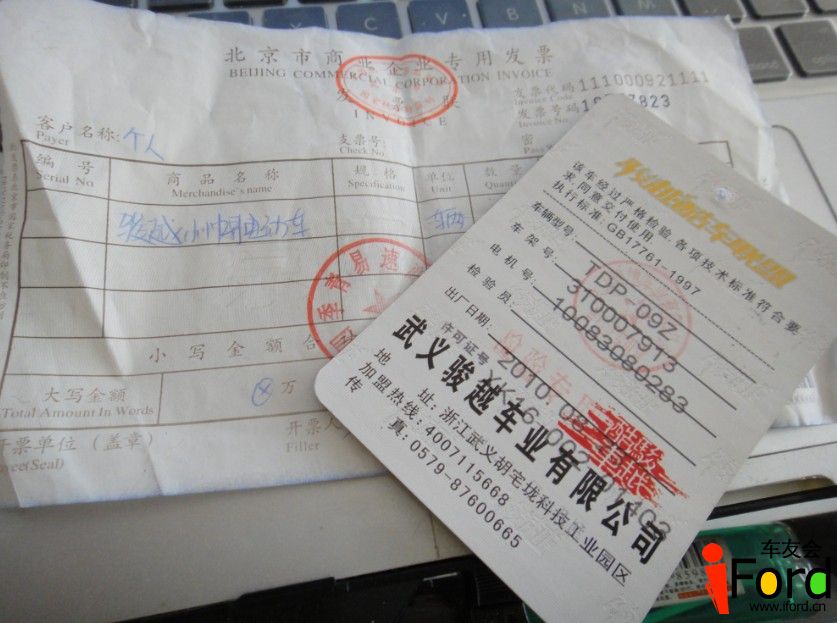 北京市商业企业专用发票
BEIJING COMMERCIAL CORPORATION INVOICE
发票联
INVOICE
发票代码 111000921111
Invoice Code
发票号码
7823
Invoice No.
客户名称:个人
Payer
支票号:
Check No.
密
编号
Serial No
商品名称
Merchandise's name
规格
Specific
单位
Unit
数量
Quant
车辆
小写金额合
大写金额
Total Amount In Words
万
开票单位(盖章)
(Seal)
开票人
Filler
该车经过严格检验,各项技术标准符合要
求,同意交付使用
执行标准 GB17761-1997
车辆型号: TDP-09Z
车架号: 3T0007913
电机号: 10083080283
检验员:
出厂日期: 2010.08
许可证号: XK16-002-01402
武义骏越车业有限公司
地址:浙江武义胡宅垅科技工业园区
加盟热线:4007115668
传真:0579-87600665
车友会
iFord
www.iford.cn